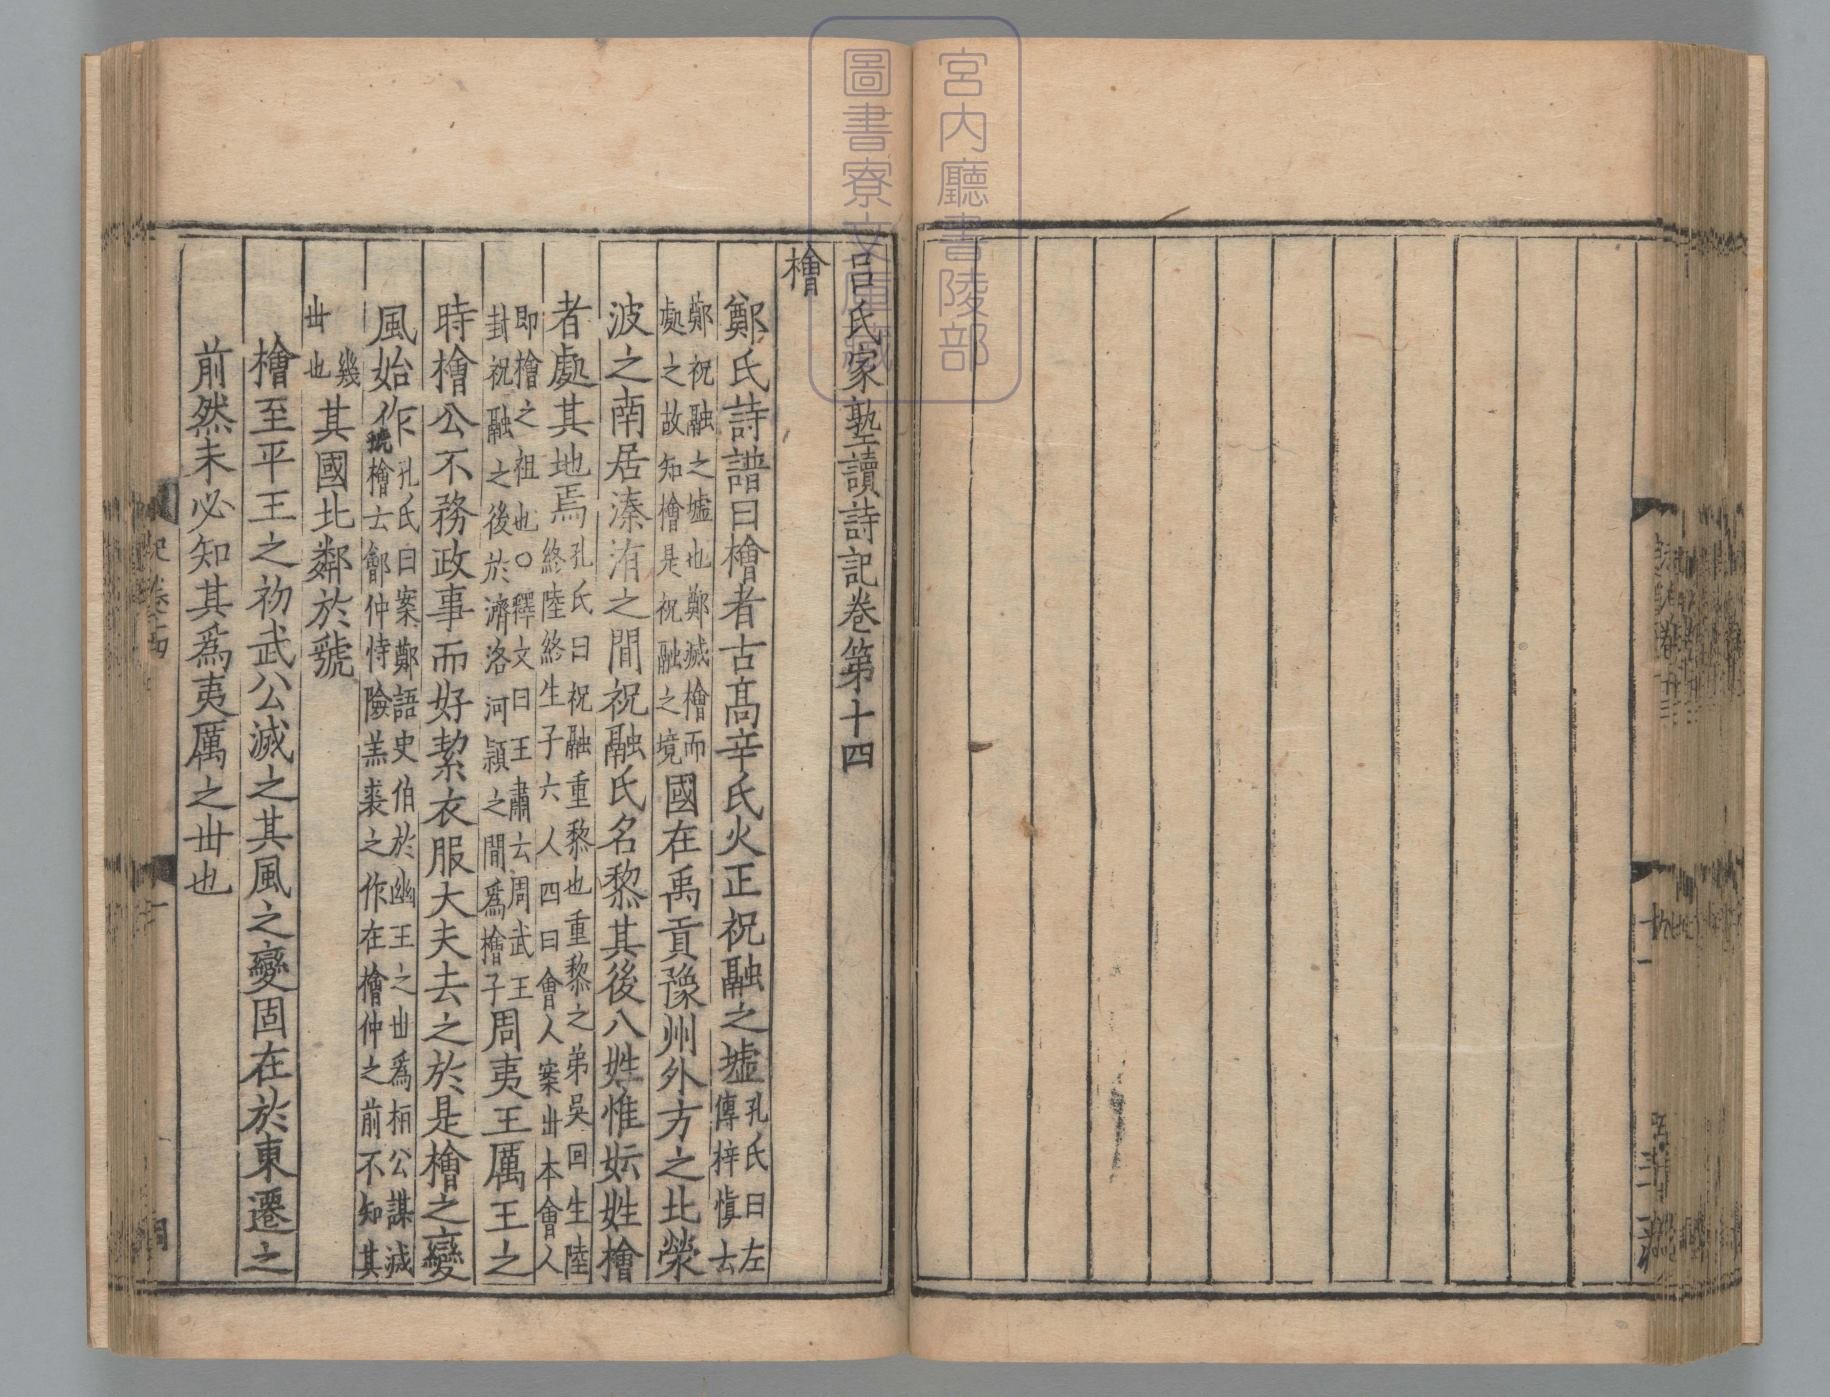 宮内廳書陵部
圖書寮文庫藏
呂氏家塾讀詩記卷第十四
檜
鄭氏詩譜曰檜者古高辛氏火正祝融之墟孔氏曰左
傳梓愼云
鄭祝融之墟也鄭滅檜而
處之故知檜是祝融之境國在禹貢豫州外方之北滎
波之南居溱洧之間祝融氏名黎其後八姓惟妘姓檜
者處其地焉孔氏曰祝融重黎也重黎之弟吳回生陸
終陸終生子六人四曰會人案丗本會人
即檜之祖也○釋文曰王肅云周武王
封祝融之後於濟洛河潁之間爲檜子周夷王厲王之
時檜公不務政事而好絜衣服大夫去之於是檜之變
風始作孔氏曰案鄭語史伯於幽王之丗爲桓公謀滅
虢檜云鄶仲恃險羔裘之作在檜仲之前不知其
幾
丗也其國北鄰於虢
檜至平王之初武公滅之其風之變固在於東遷之
前然未必知其爲夷厲之丗也